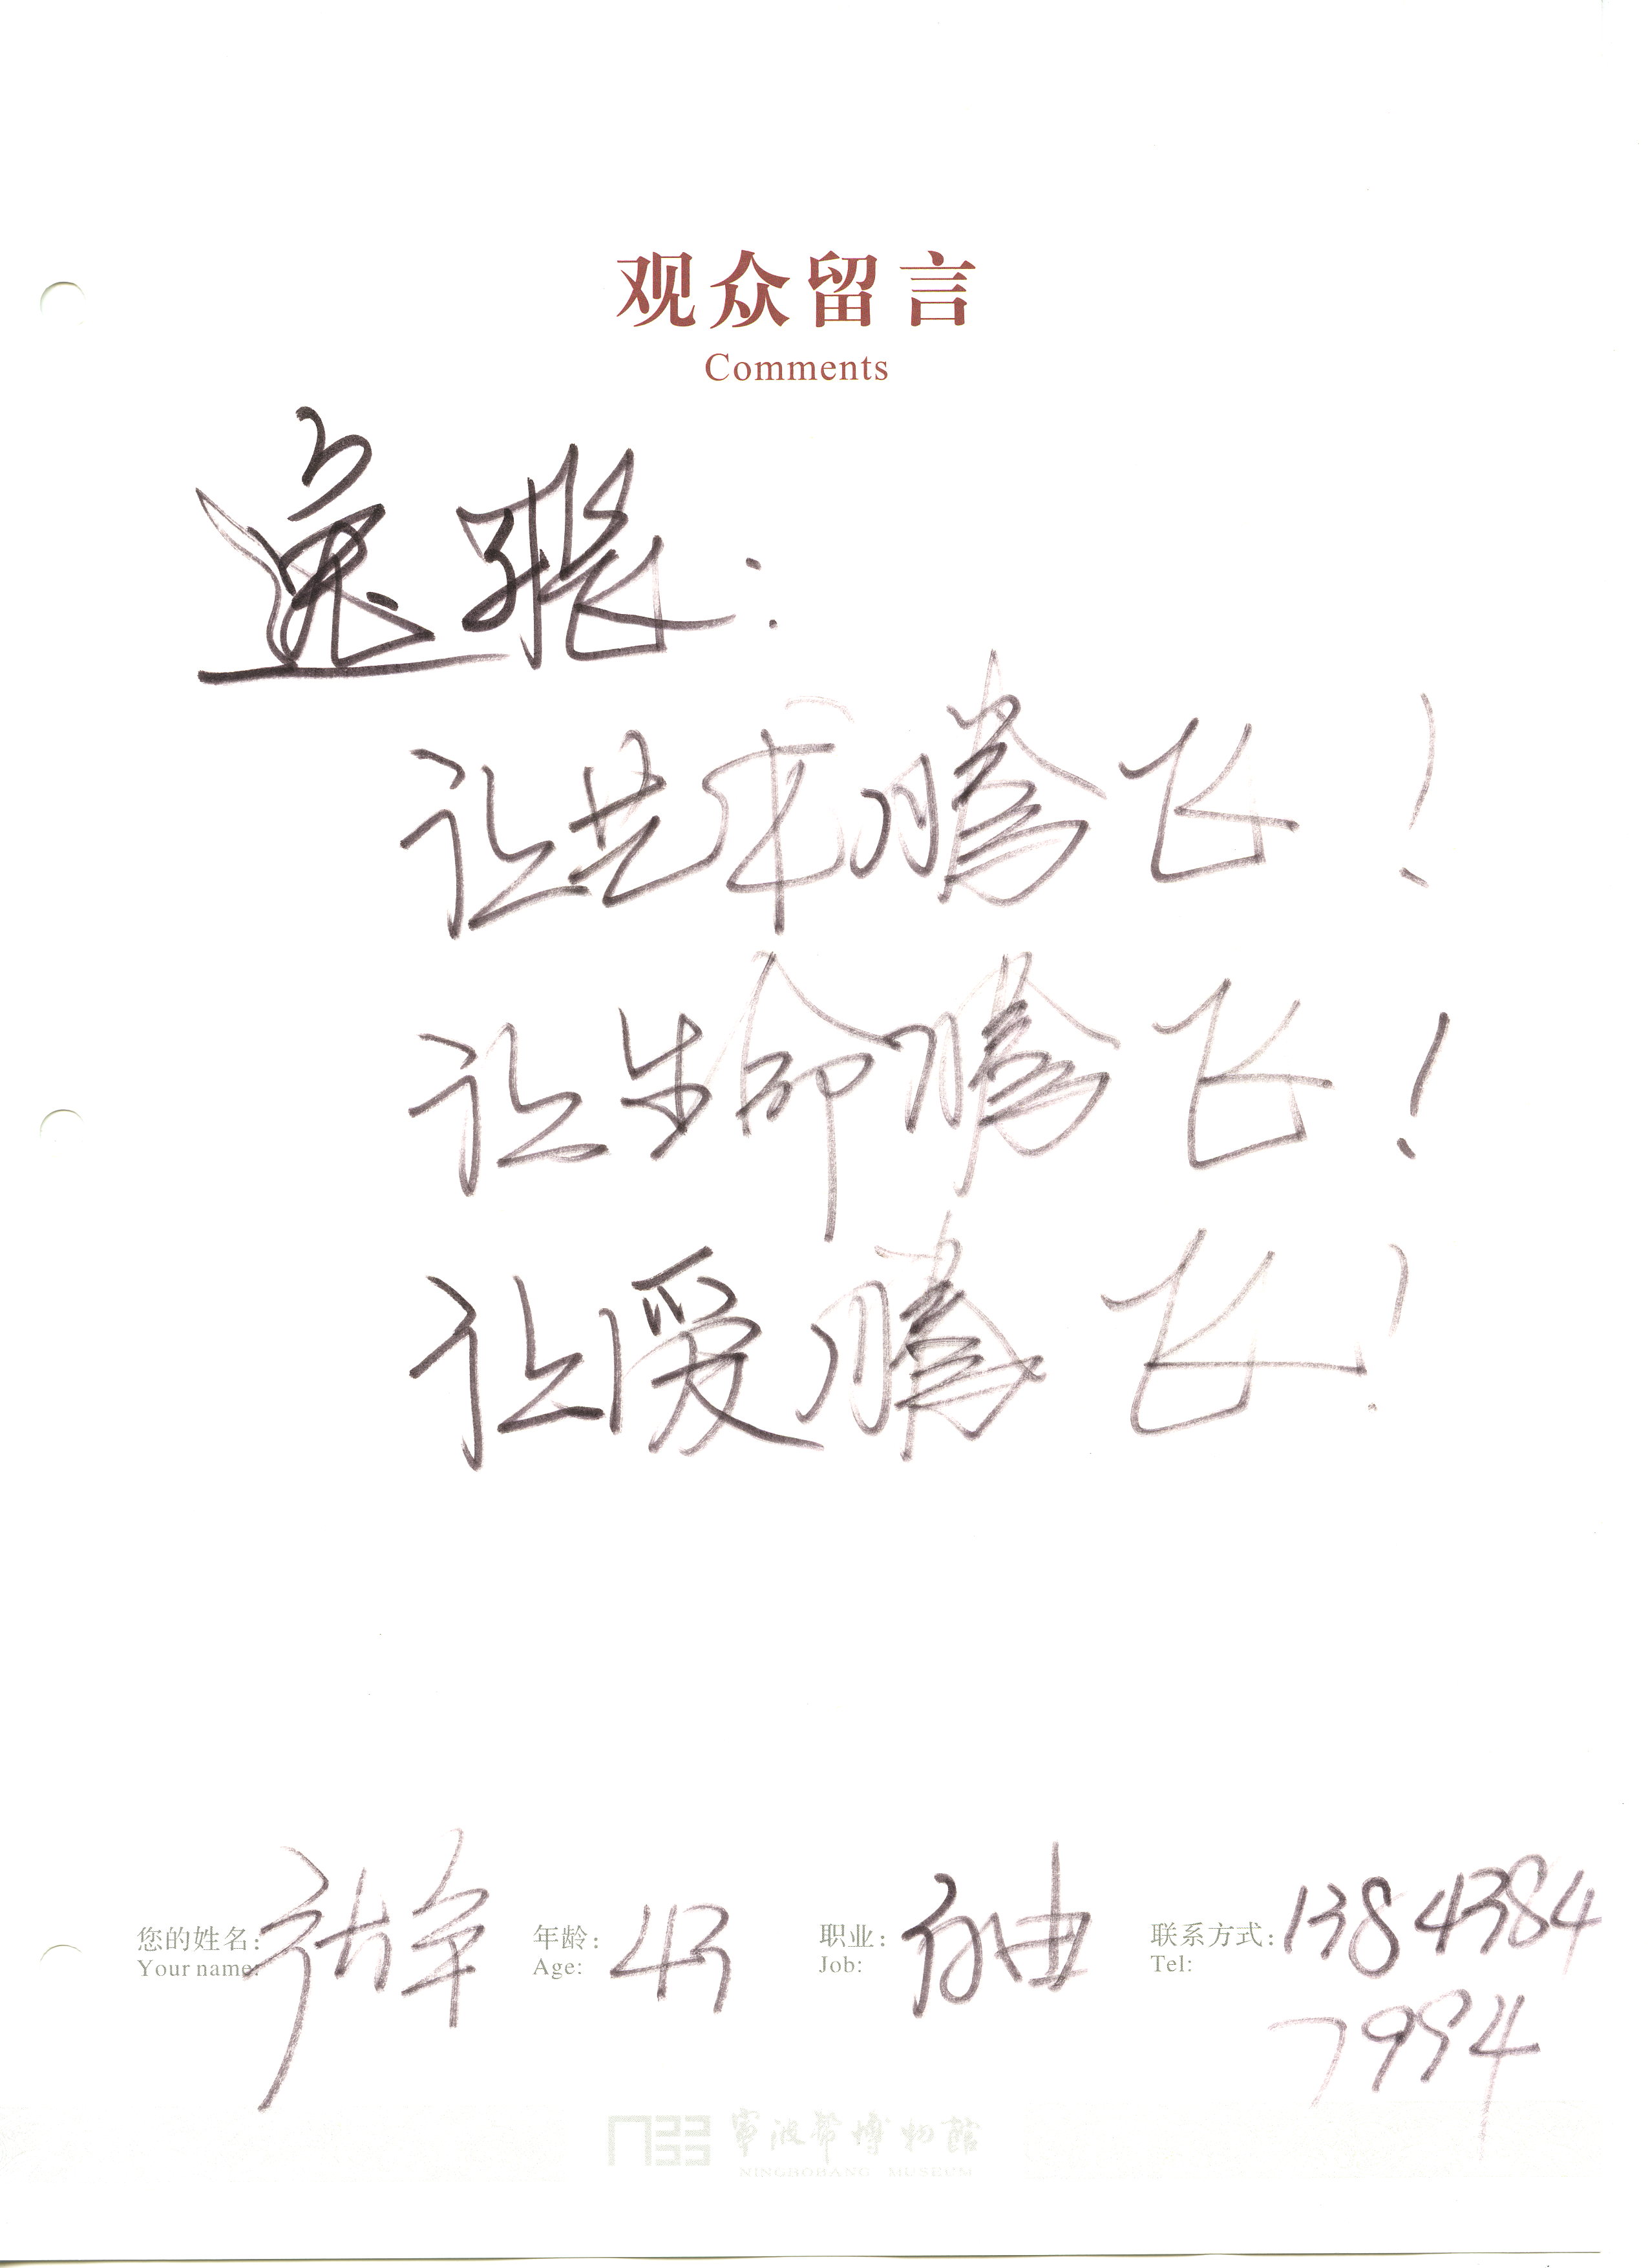 观众留言
Comments
逸飛：
让艺术腾飞！
让生命腾飞！
让爱腾飞！
您的姓名： 年龄：43 职业：自由 联系方式：1384384
Your name: Age: Job: Tel:
7994
寧波幫博物館
NINGBOBANG MUSEUM